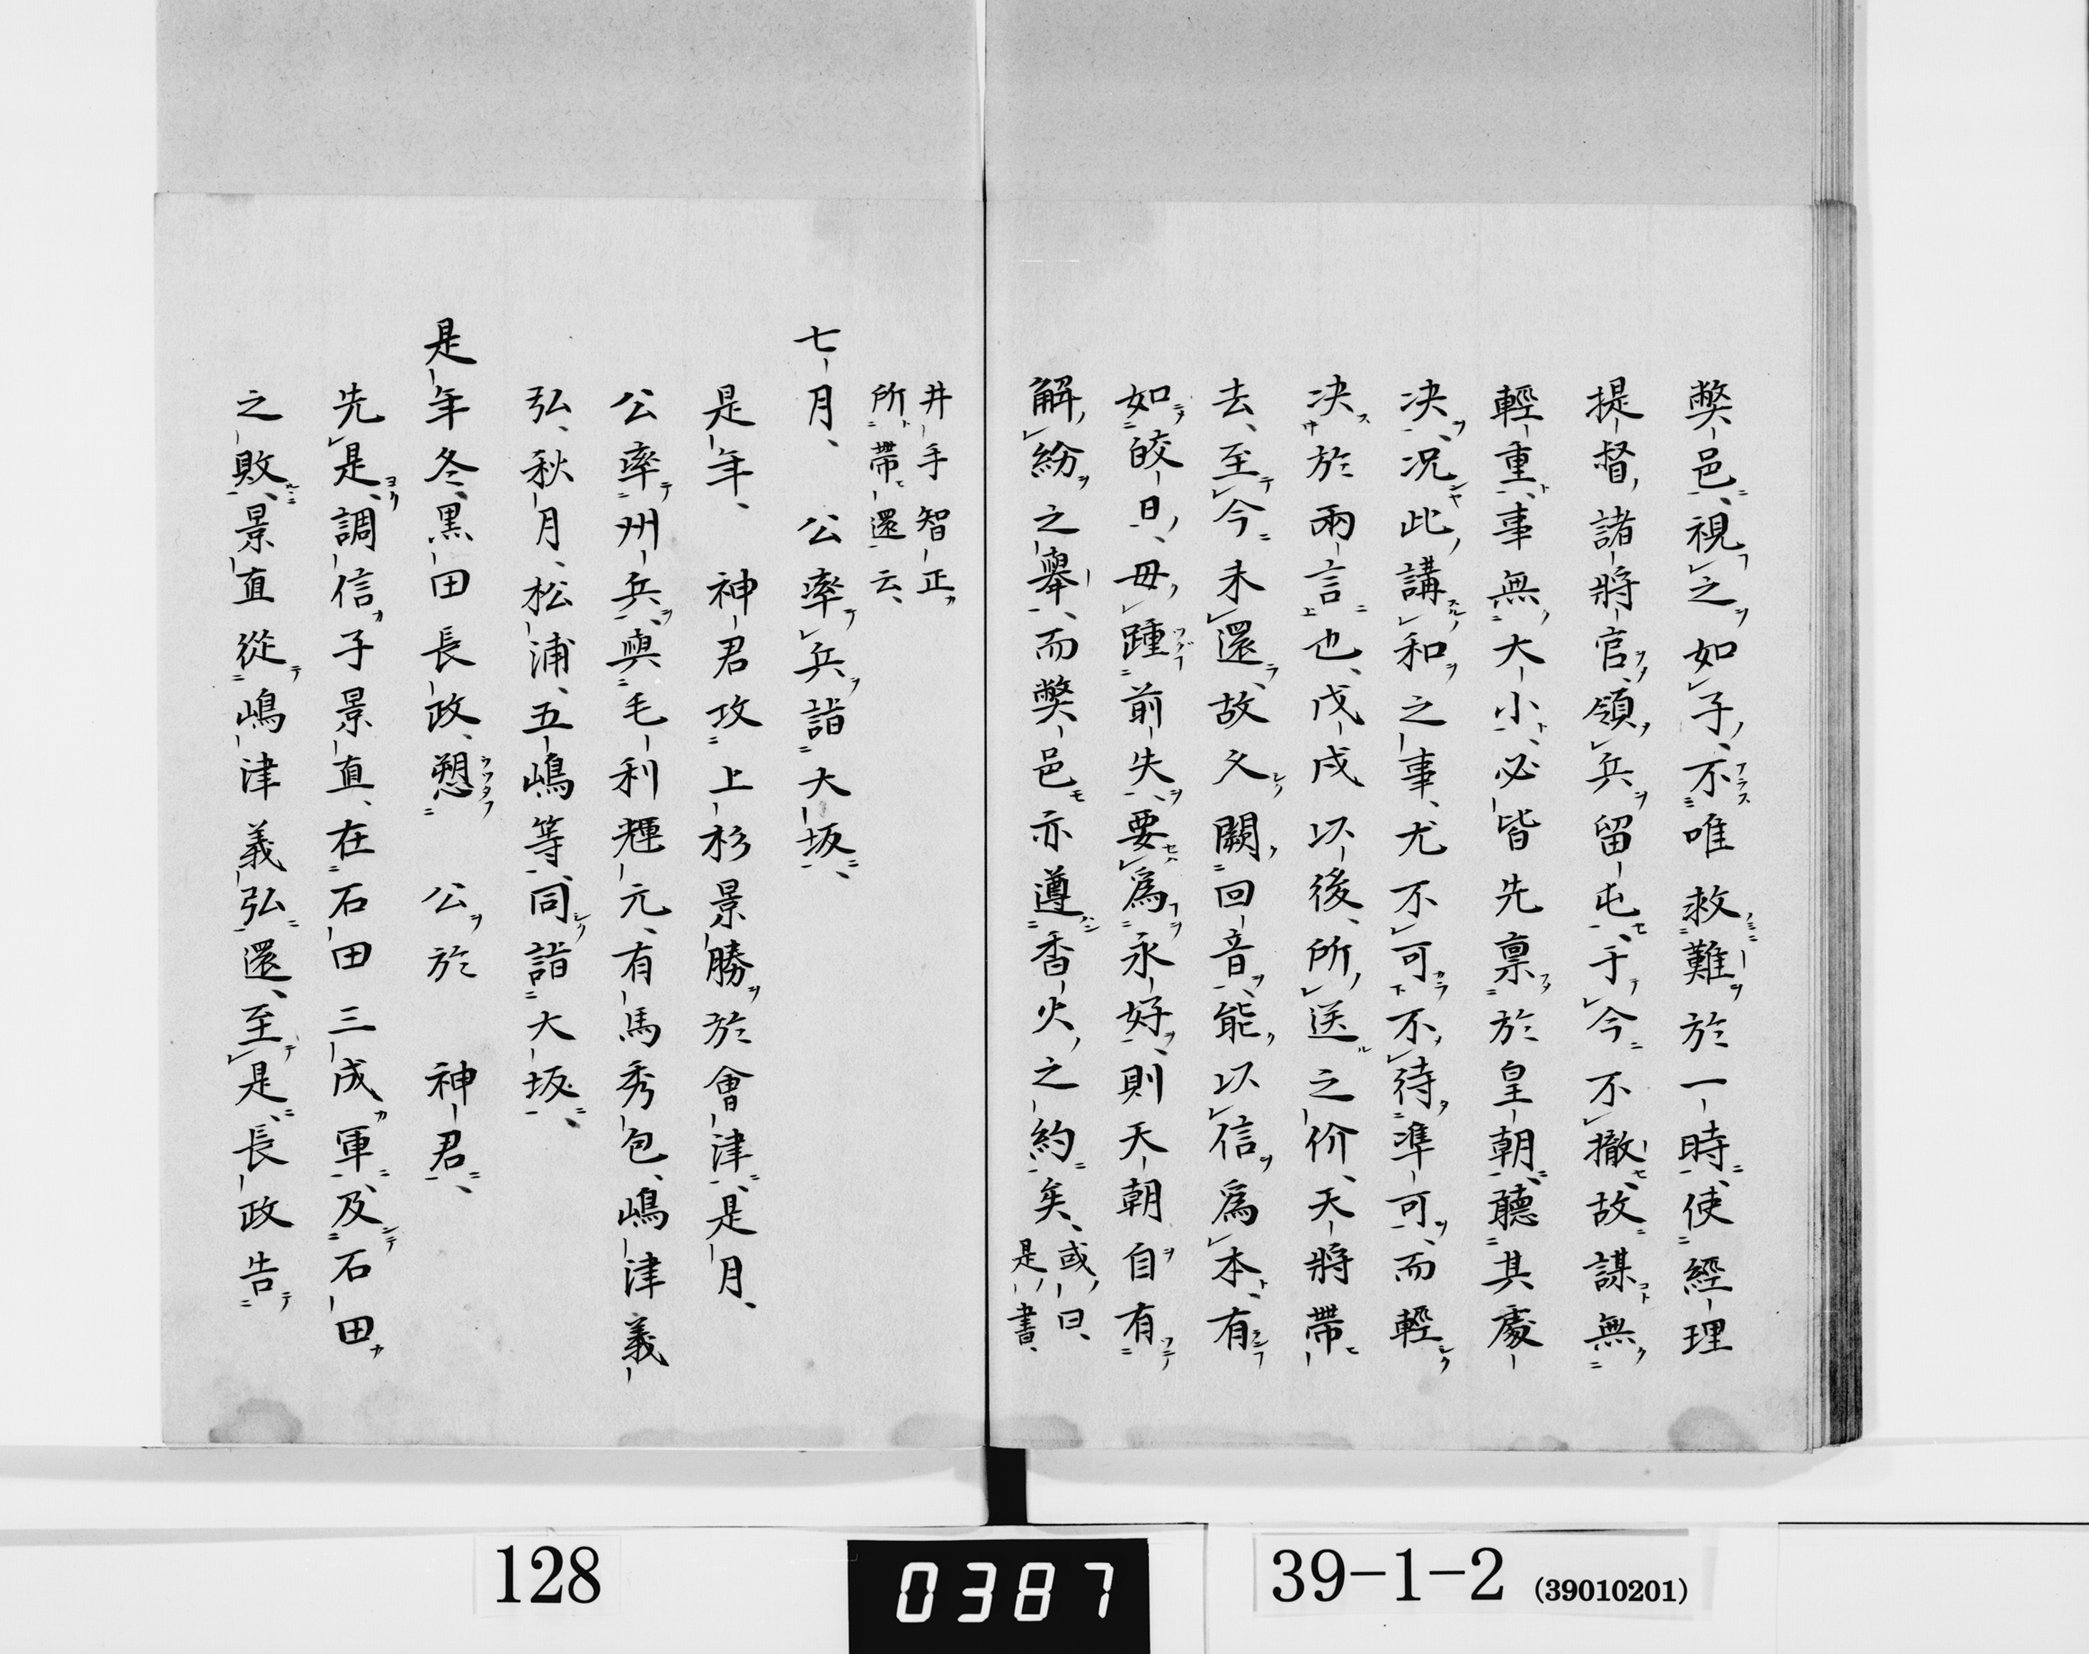 弊邑視之如子不唯救難於一時使經理
提督諸將官領兵留屯于今不撤故謀無
輕重事無大小必皆先禀於皇朝聽其處
决况此講和之事尤不可不待準可而輕
决於兩言也戊戌以後所送之价天將帶
去至今未還故久闕回音能以信爲本有
如皎日毋踵前失要爲永好則天朝自有
解紛之擧而弊邑亦遵香火之約矣或曰
是書
井手智正
所帶還云
七月 公率兵詣大坂
是年 神君攻上杉景勝於會津是月
公率州兵與毛利輝元有馬秀包嶋津義
弘秋月松浦五嶋等同詣大坂
是年冬黒田長政愬 公於 神君
先是調信子景直在石田三成軍及石田
之敗景直從嶋津義弘還至是長政告
128
0387
39-1-2 (39010201)